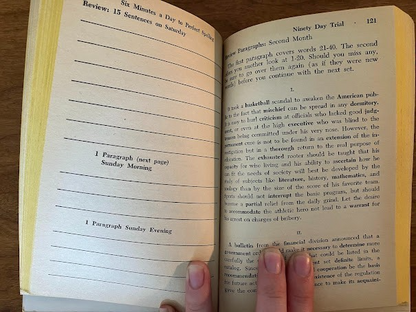 Six Minutes a Day to Perfect Spelling
Review: 15 Sentences on Saturday
1 Paragraph (next page)
Sunday Morning
1 Paragraph Sunday Evening
Ninety Day Trial 121
Paragraphs: Second Month
The first paragraph covers words 21-40. The second
you another look at 1-20. Should you miss any,
sure to go over them again (as if they were now
) before you continue with the next set.
I.
It took a basketball scandal to awaken the American pub-
to the fact that mischief can be spread in any dormitory.
is easy to hurl criticism at officials who lacked good judg-
, or even at the high executive who was blind to the
being committed under his very nose. However, the
cure is not to be found in an extension of the in-
but in a thorough return to the real purpose of
education. The exhausted rooter should be taught that his
for wise living and his ability to ascertain how he
fit the needs of society will best be developed by the
study of subjects like literature, history, mathematics, and
than by the size of the score of his favorite team.
should not interrupt the basic program, but should
a partial relief from the daily grind. Let the desire
accommodate the athletic hero not lead to a warrant for
his arrest on charges of bribery.
II.
A bulletin from the financial division announced that a
government necessary to determine more
carefully the that could be listed in the
catalog. set definite limits, a
cooperation be the basis
existence of the regulation
to make its acquain-